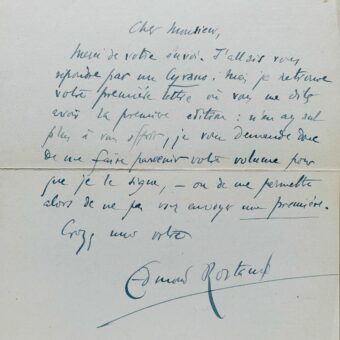 Cher Monsieur,
Merci de votre envoi. J'allais vous
répondre par un Cyrano : mais je retrouve
votre première lettre où vous me dites
avoir la première édition : n'en ayant
plus à vous offrir, je vous demande donc
de me faire parvenir votre volume pour
que je le signe, – ou de me permettre
alors de ne pas vous envoyer une première.
Croyez moi votre
Edmond Rostand